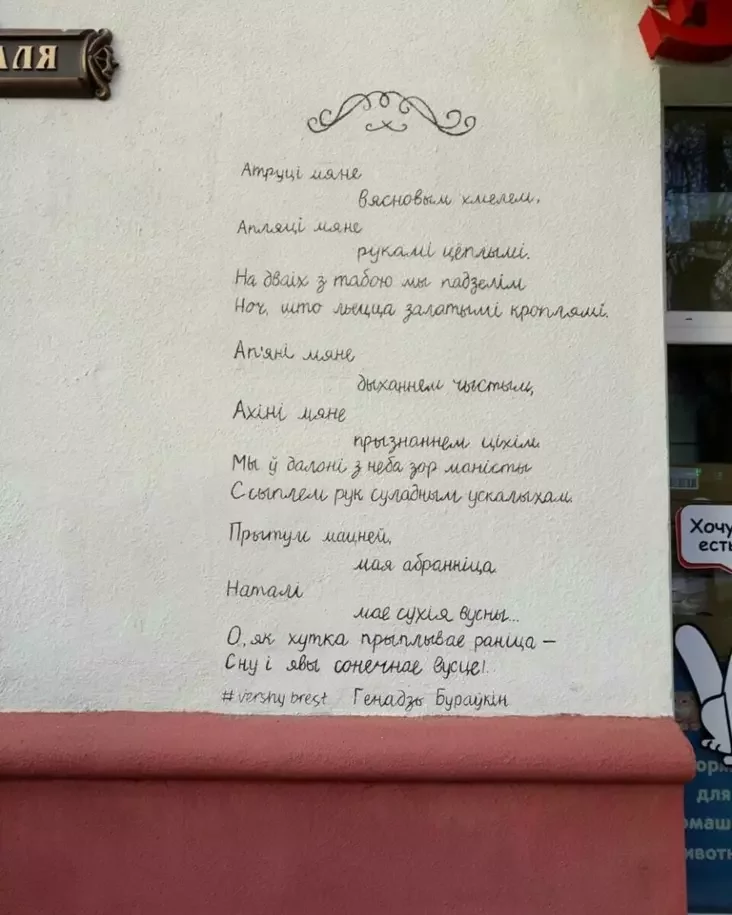 АЛЯ
Атруці мяне
вясновым хмелем,
Апляці мяне
рукамі цёплымі.
На дваіх з табою мы падзелім
Ноч, што льецца залатымі кроплямі.
Ап'яні мяне
дыханнем чыстым,
Ахіні мяне
прызнаннем ціхім.
Мы ў далоні з неба зор маністы
Ссыплем рук суладным ускалыхам.
Прытулі мацней,
мая абранніца.
Наталі
мае сухія вусны...
О, як хутка прыплывае раніца —
Сну і явы сонечнае вусце!..
#vershybrest Генадзь Бураўкін
Хочу
есть
для